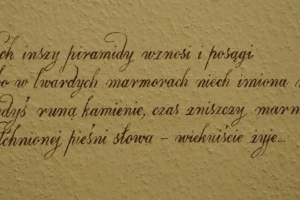 ch inszy piramidy wznosi i posągi
bo w twardych marmorach niech imiona
runą kamienie, czas zniszczy
tchnionej pieśni słowa – wiekuiście żyje...